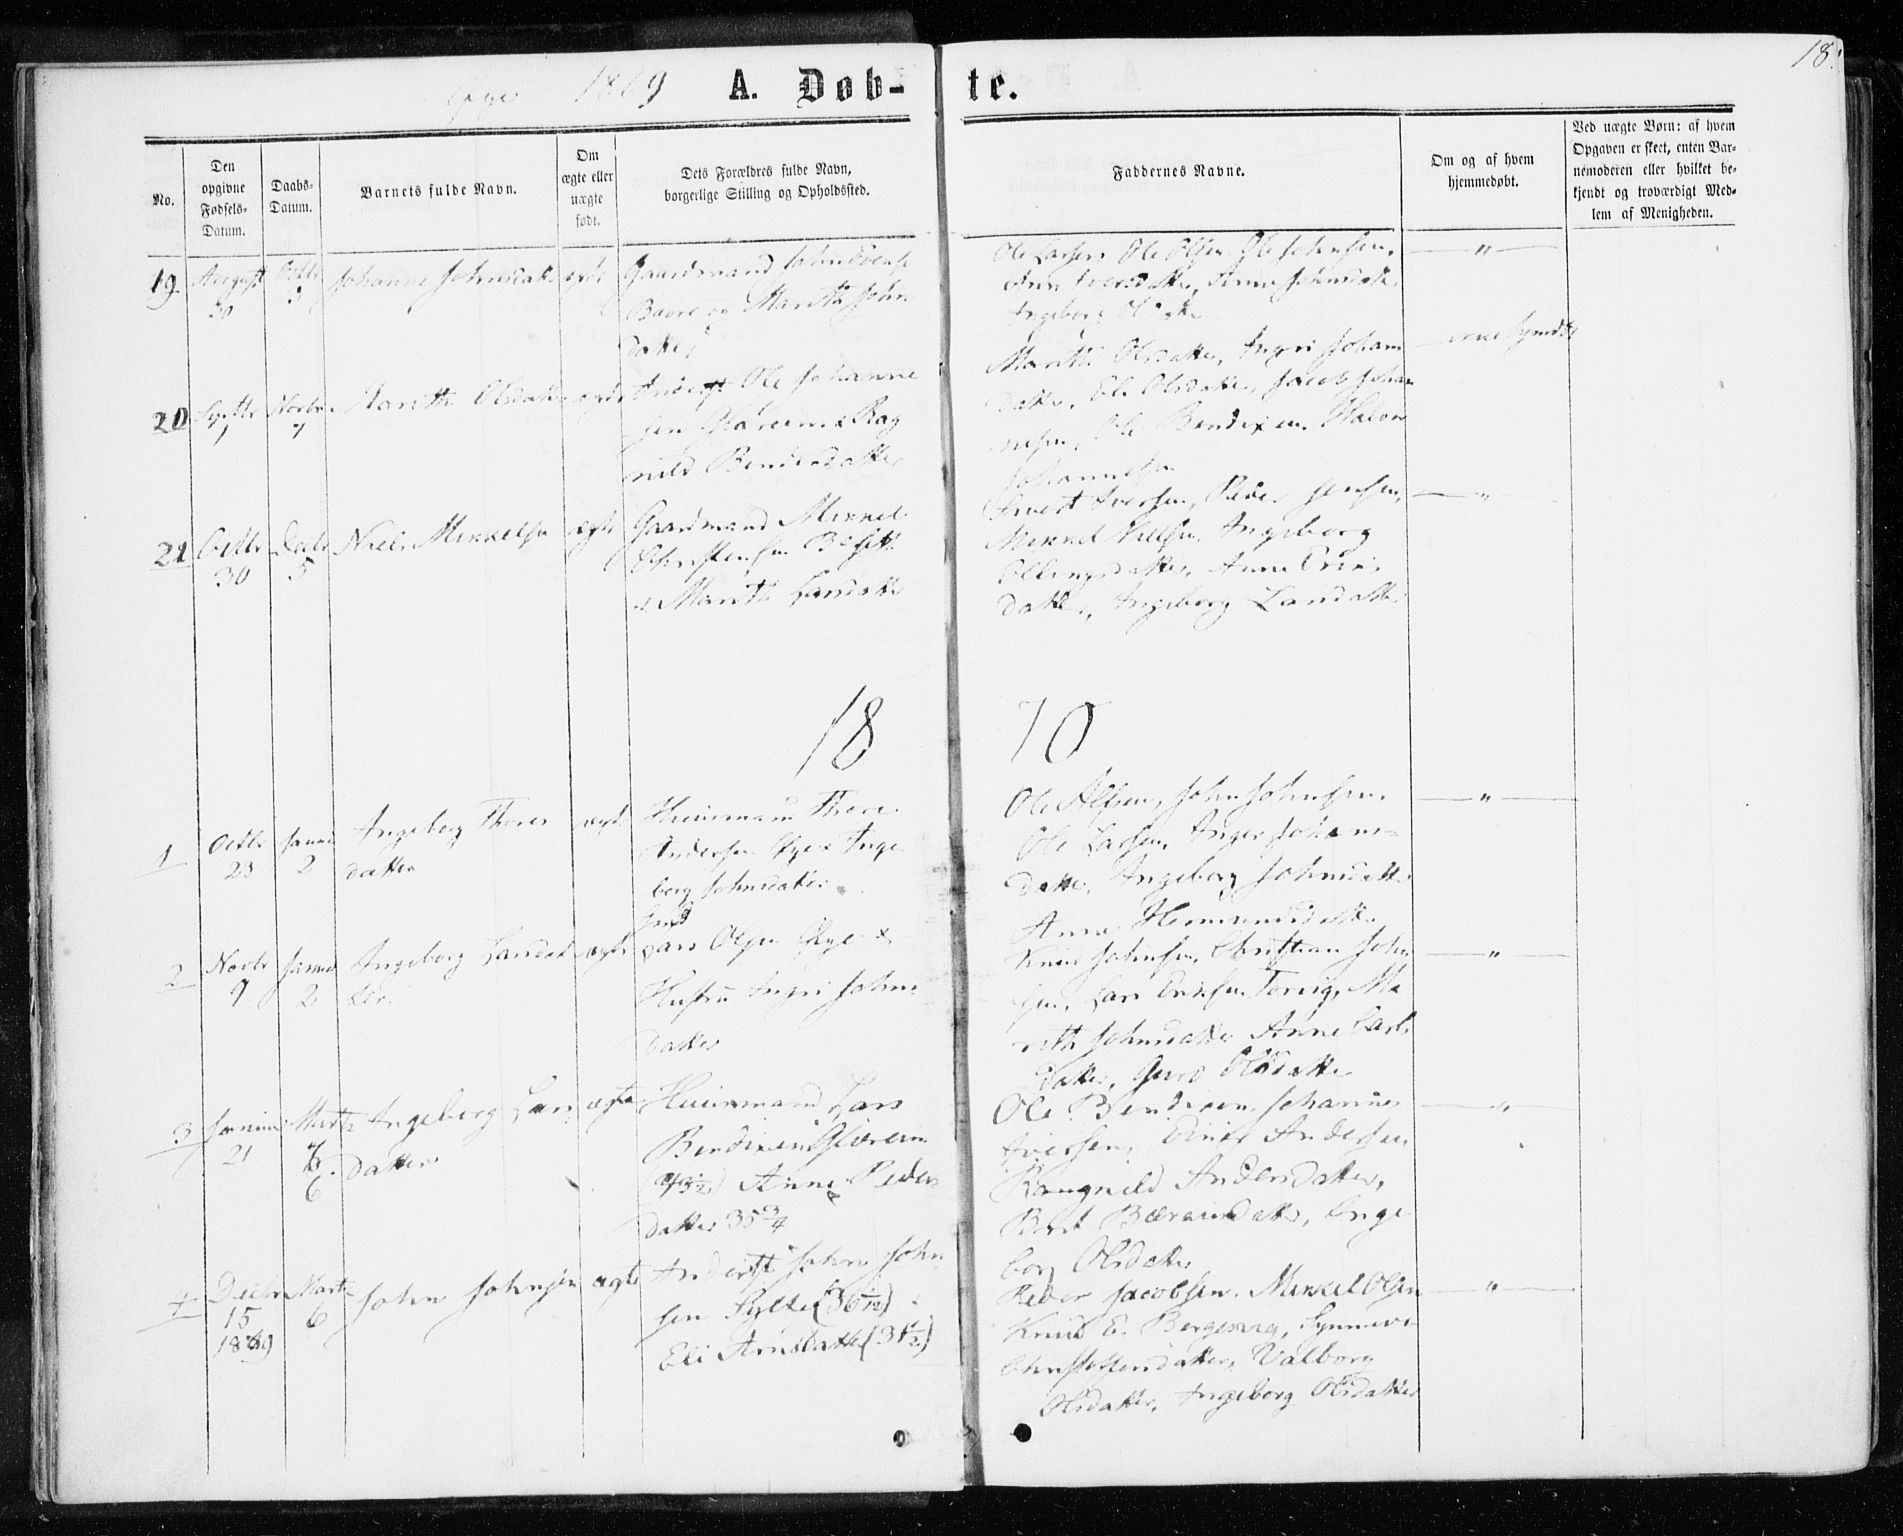 18.
1869 A. Døb-te.
No.
Den
opgivne
Fødsels-
Datum.
Daabs-
Datum.
Barnets fulde Navn.
Om
ægte eller
uægte
født.
Dets Forældres fulde Navn,
borgerlige Stilling og Opholdssted.
Faddernes Navne.
Om og af hvem
hjemmedøbt.
Ved uægte Børn: af hvem
Opgaven er skeet, enten Bar-
nemoderen eller hvilket be-
kjendt og troværdigt Med-
lem af Menigheden.
19
August
30
Octbr
3
Johanne Johnsdatter
ægte
Gaardmand John Evense
Bøvre og Marith Johns
datter
Ole Larsen Ole Olsen Ole Johnsen,
Ane Iversdatter, Anne Johnsdatter,
Ingeborg Olsdatter
— " —
20
Septbr
Novbr
7
Marith Olsdatter
ægte
Inderst Ole Johanne
sen Glærem & Rag
nild Bendixdatter
Marith Olsdatter, Ingri Joham
datter, Eli Olsdatter, Jacob Johan
nesen, Ole Bendixen, Halvor
Johannesen
21
Octbr
30
Decbr
5
Niels Mikkelsen
ægte
Gaardmand Mikkel
Christensen
& Marith Larsdatter
Sivert Iversen, Peder Jensen,
Mikkel Nilsen, Ingeborg
Ellingsdatter, Anne Erics
datter, Ingeborg Larsdatter
— " —
18 70
1
Octbr
23
Januar
2
Ingeborg Thores
datter
ægte
Huusmand Thore
Andersen Øye & Inge
borg Johnsdatter
Ole Alfsen, John Johnsen,
Ole Larsen, Inger Johans-
datter, Ingeborg Johnsdatter
Anne Hermundsdatter
— " —
2
Novbr
9
Januar
2
Ingeborg Larsdat
ter
ægte
Gmd
Lars Olsen Øye &
Hustru Ingri Johns
datter
Knud Johnsen, Christian John
sen, Lars Eriksen Torvig, Ma
rith Johnsdatter Anne Carls
datter, Guro Olsdatter
— " —
3
Januar
21
Marts
6
Ingeborg Lars
datter
ægte
Huusmand Lars
Bendixen Glærem
Anne Peders
datter 35 3/4
Ole Bendixen, Johannes
Iversen, Einer Andersen
Rangnild Andersdatter,
Berit Bæraunsdatter, Inge
borg Olsdatter
— " —
4
Decbr
15
1869
Marts
6
John Johnsen
ægte
Inderst John John
sen Sylte
Eli Arnsdatter
Peder Jacobsen. Mikkel Olsen
Knud E. Bergesvag, Synneve
Christophersdatter, Valborg
Olsdatter, Ingeborg Olsdatter
— " —